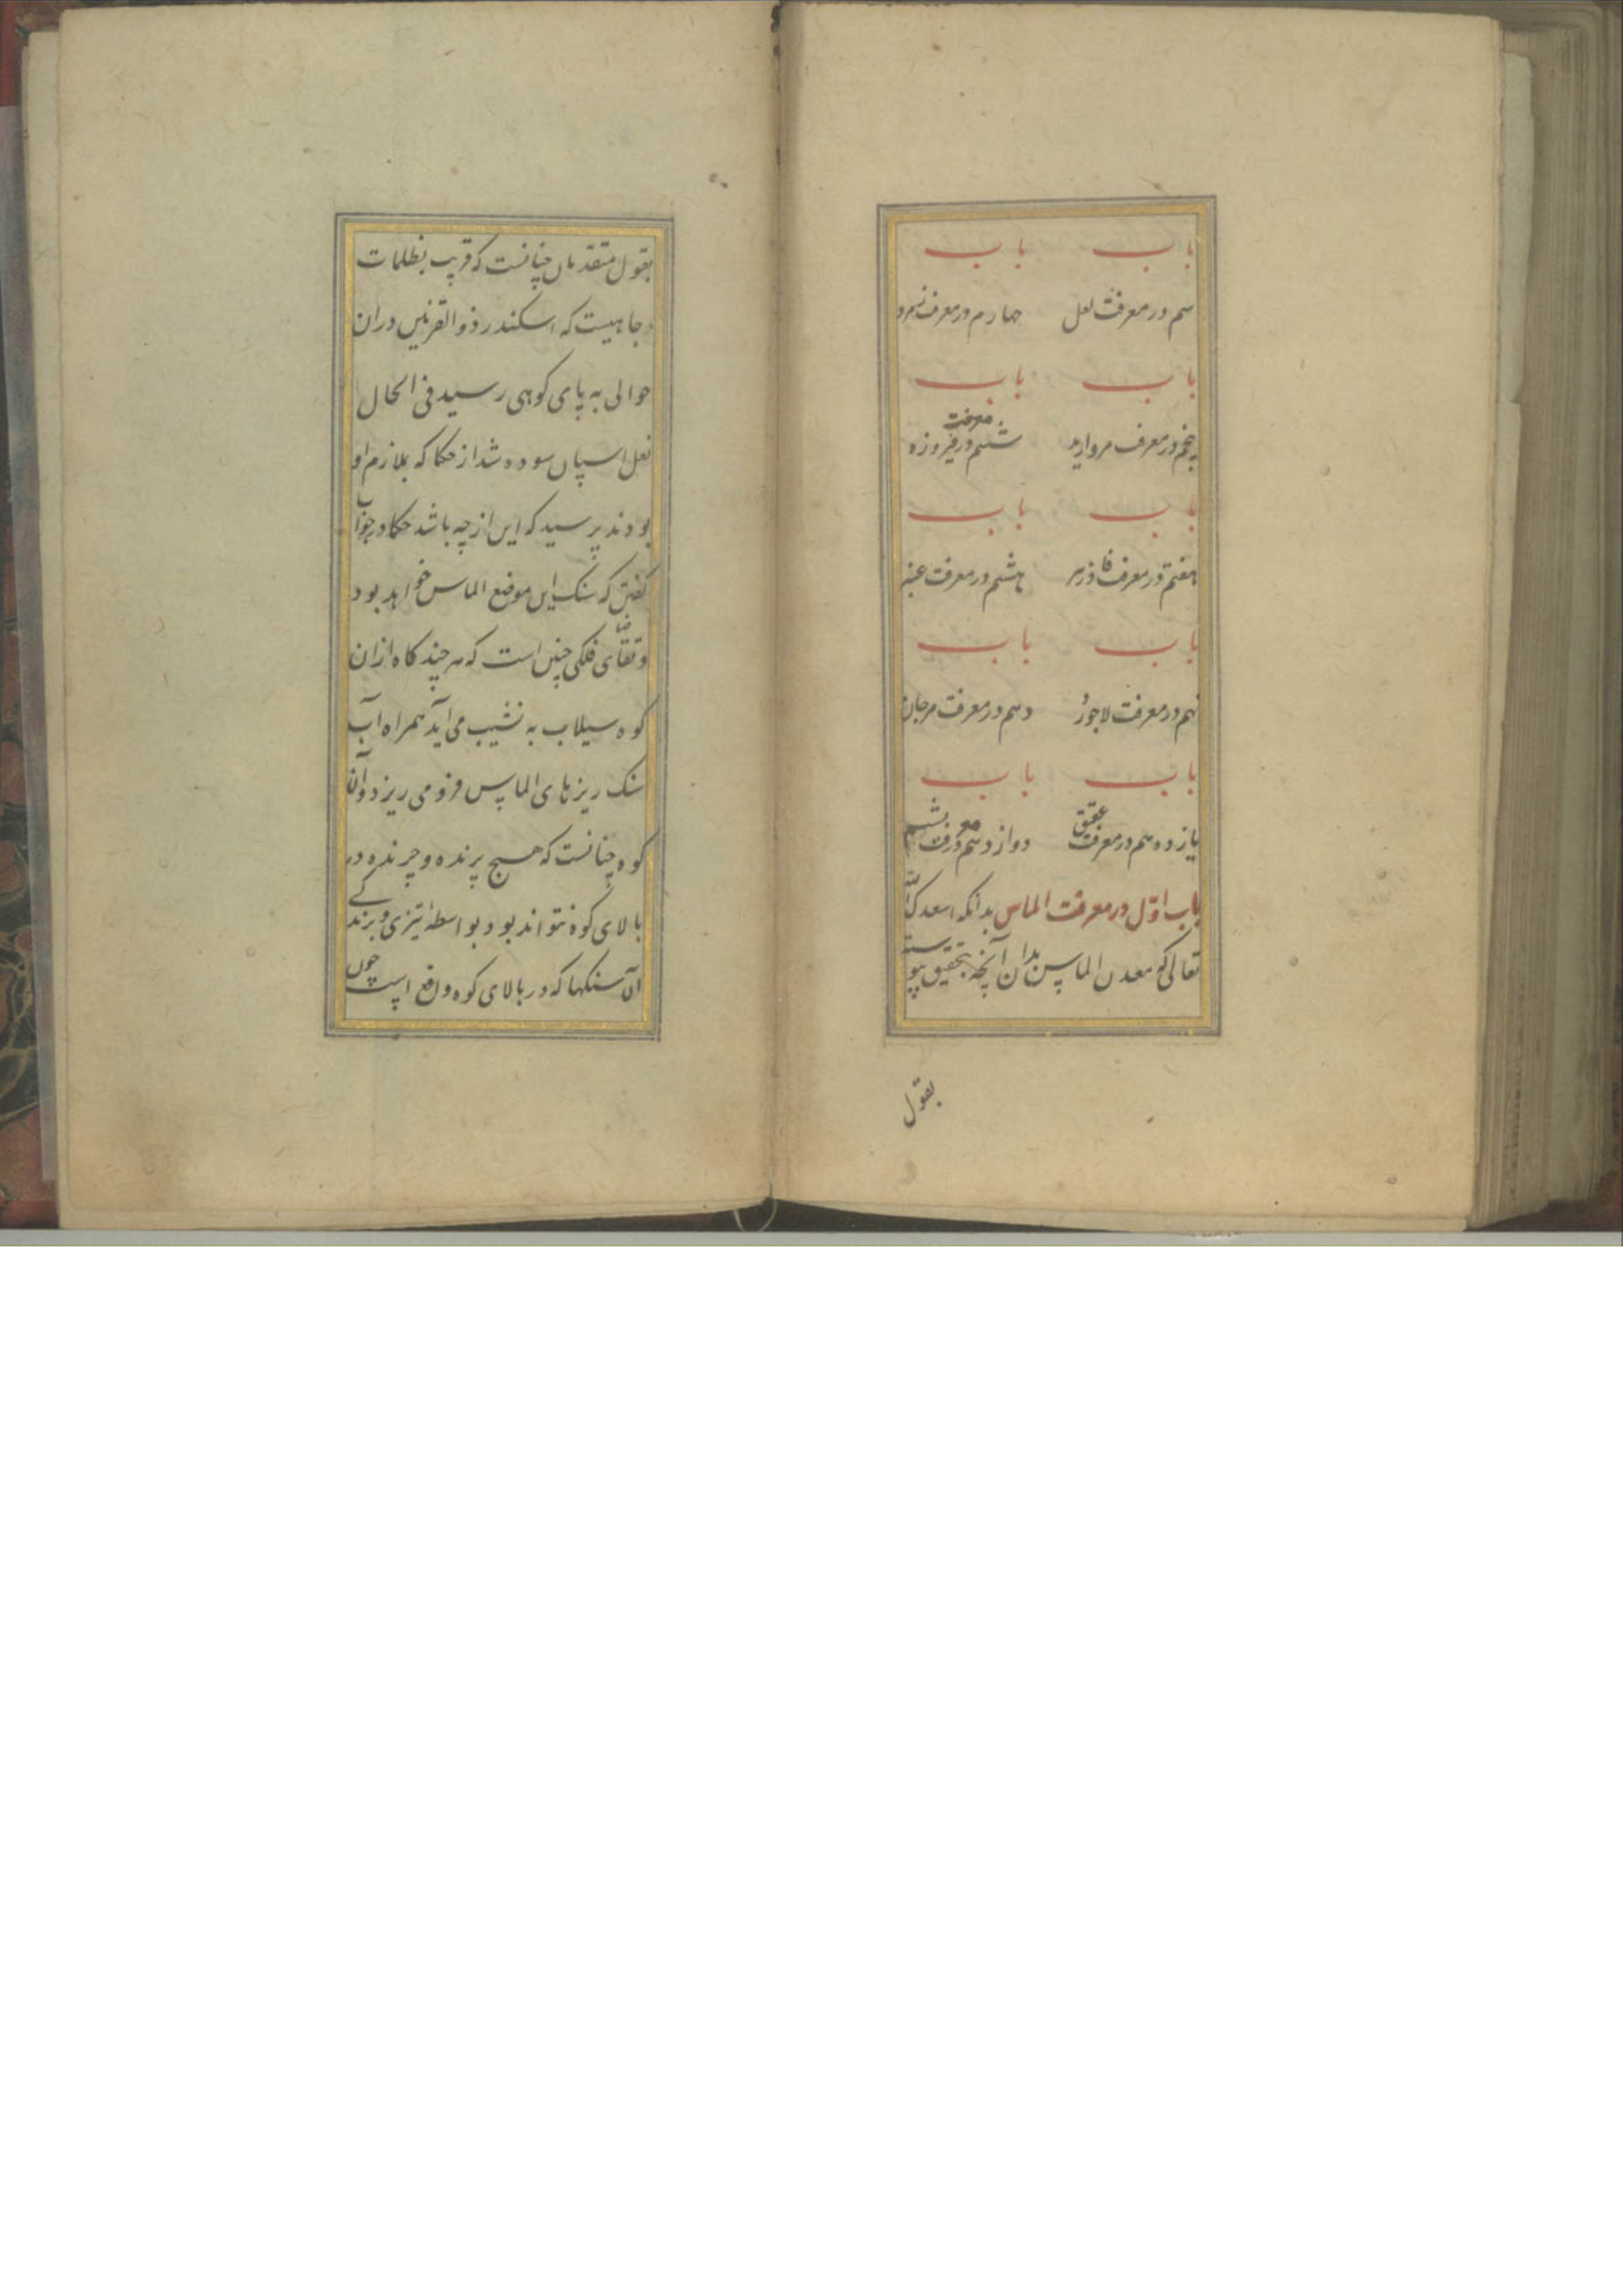 باب باب
سیم در معرفت لعل چهارم در معرفت زمرد
باب باب
پنجم در معرفت مروارید ششم در معرفت فیروزه
باب باب
هفتم در معرفت فادزهر هشتم در معرفت عنبر
باب باب
نهم در معرفت لاجورد دهم در معرفت مرجان
باب باب
یازدهم در معرفت عقیق دوازدهم در معرفت یشم
باب اوّل در معرفت الماس بدانکه اسعدک الله
تعالی که معدن الماس بدان آنچه بتحقیق پیوسته
بقول
بقول متقدمان چنانست که قریب بظلمات
جاهیست که اسکندر ذوالقرنین دران
حوالی به پای کوهی رسید فی الحال
نعل اسپان سوده شد از حکما که ملازم او
بودند پرسید که این از چه باشد حکما در جواب
کفتن که سنک این موضع الماس خواهد بود
و قضای فلکی چنین است که هر چند کاه ازان
کوه سیلاب به نشیب می آید همراه آب
سنک ریزهای الماس فرو می ریزد و آن
کوه چنانست که هیچ پرنده و چرنده در
بالای کوه نتواند بود بواسطهٔ تیزی و برندکے
آن سنکها که در بالای کوه واقع است چون